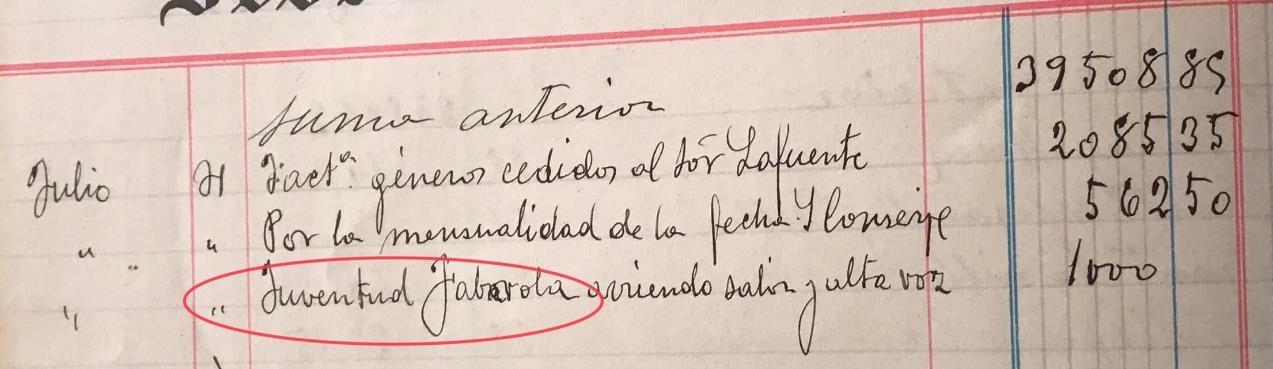 Suma anterior 39508 85
Julio 31 Factª. géneros cedidos al Sór Lafuente 2085 35
" " Por la mensualidad de la fecha Y Conserje 562 50
" " Juventud Fabarola arriendo salón y alta voz 1000